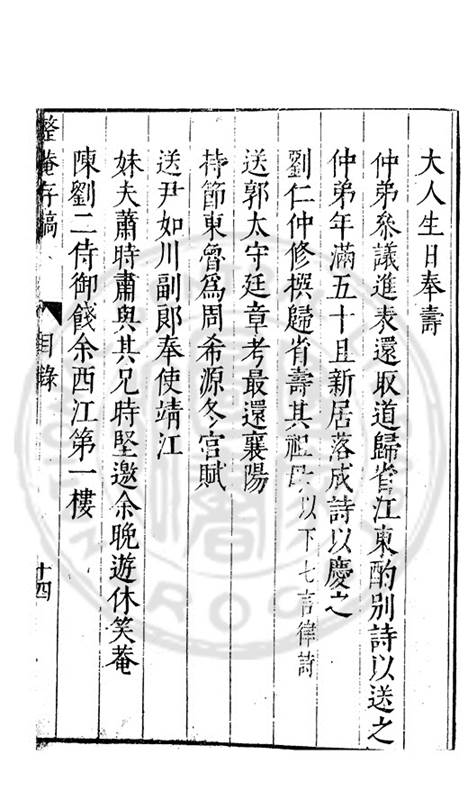 大人生日奉壽
仲弟叅議進表還取道歸省江東酌别詩以送之
仲弟年滿五十且新居落成詩以慶之
劉仁仲修撰歸省壽其祖母以下七言律詩
送郭太守廷章考最還襄陽
持節東魯爲周希源冬官賦
送尹如川副郎奉使靖江
妹夫蕭時肅與其兄時堅邀余晚遊休笑菴
陳劉二侍御餞余西江第一樓
整菴存稿 目錄 十四